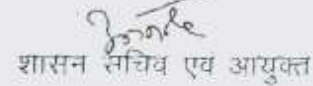 शासन सचिव एवं आयुक्त